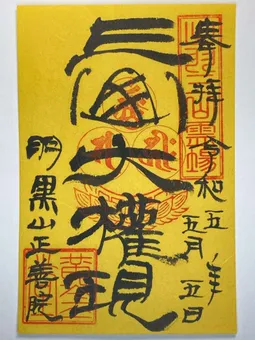 奉拝 令和五年
五月五日
三国大權現
羽黒山正善院